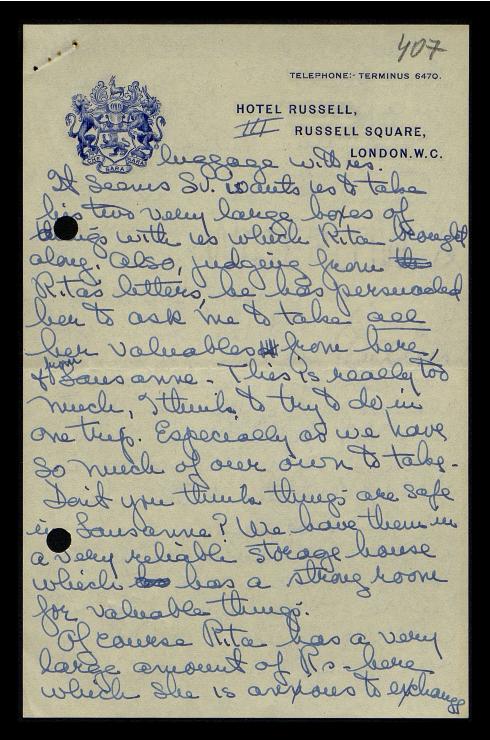 407
TELEPHONE:- TERMINUS 6470.
HOTEL RUSSELL,
III RUSSELL SQUARE,
LONDON. W.C.
CHE SARA SARA
luggage with us.
It seems Sv. wants us to take
his two very large boxes of
things with us which Rita brought
along. Also, judging from the
Rita's letters, he has persuaded
her to ask me to take all
her valuables from here,
from
to Lausanne. This is really too
much, I think, to try to do in
one trip. Especially as we have
so much of our own to take.
Don't you think things are safe
in Lausanne? We have them in
a very reliable storage house
which has a strong room
for valuable things.
Of course Rita has a very
large amount of Rs. here
which she is anxious to exchange